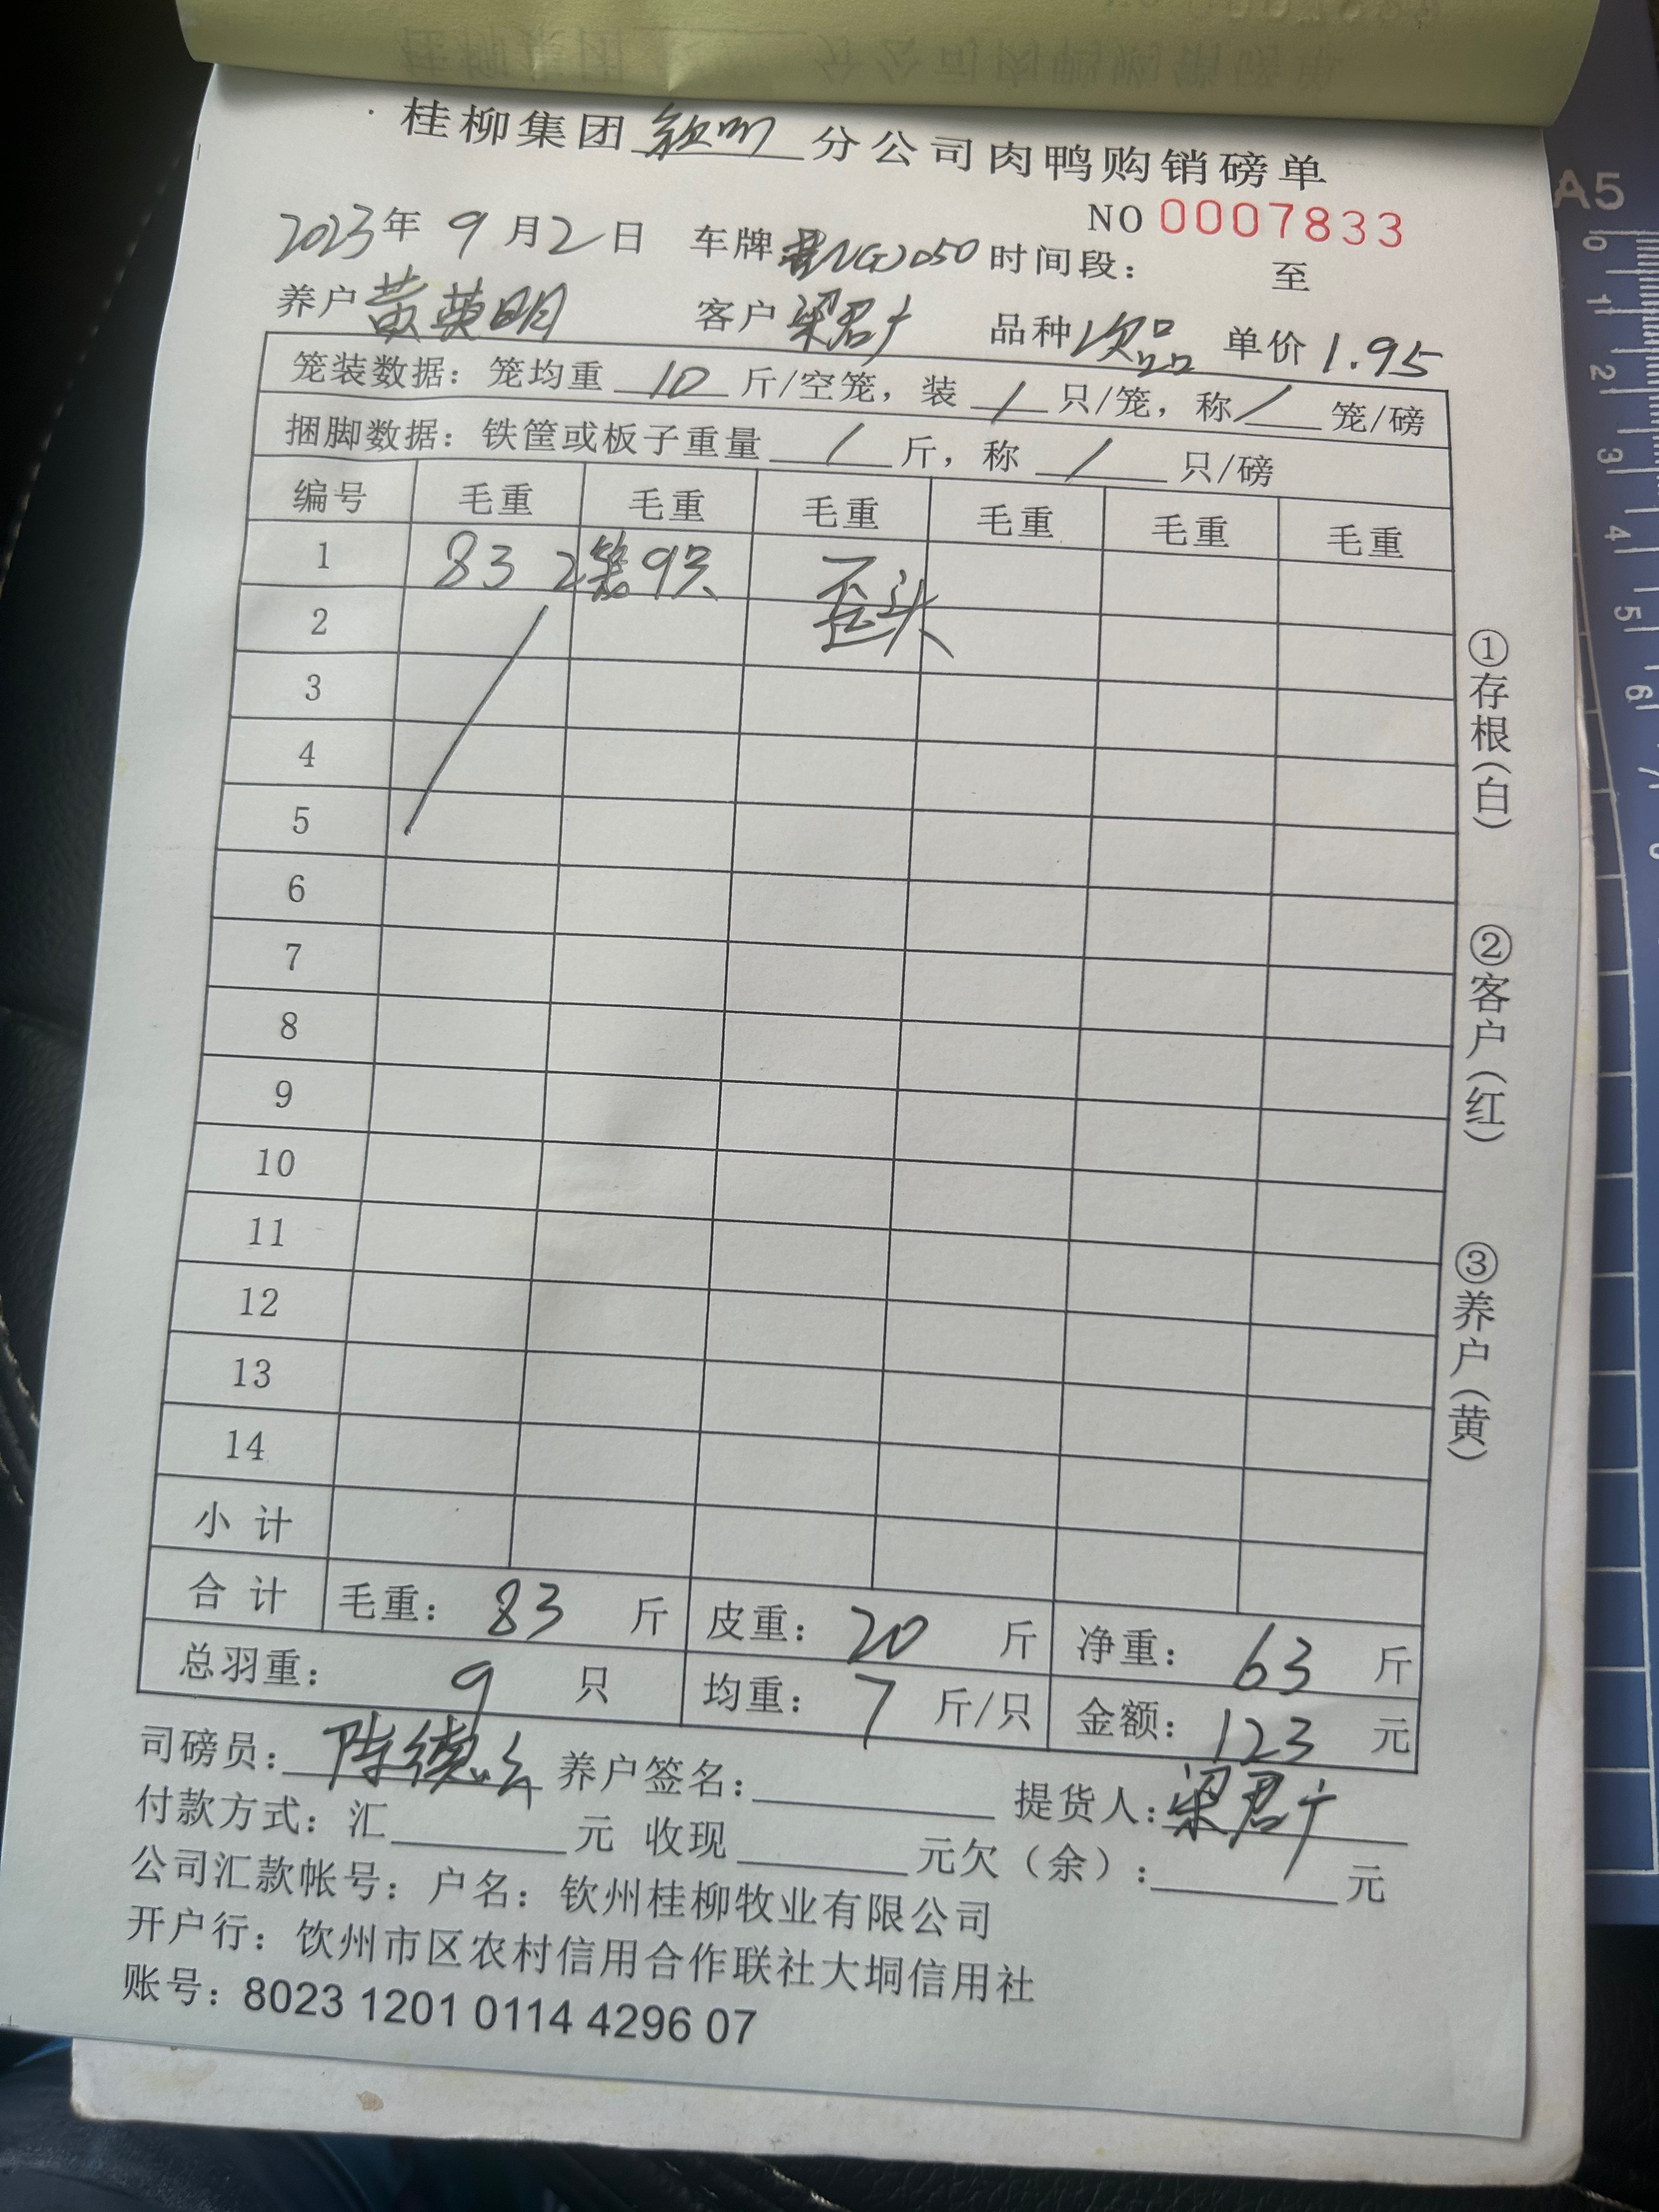 桂柳集团钦州分公司肉鸭购销磅单
NO 0007833
2023年 9月2日 车牌 时间段: 至
养户黄英明 客户梁君广 品种次品 单价1.95
笼装数据：笼均重 10 斤/空笼，装 / 只/笼，称 / 笼/磅
捆脚数据：铁筐或板子重量 / 斤，称 / 只/磅
编号 毛重 毛重 毛重 毛重 毛重 毛重
1 83 2笼9只 歪头
2
3
4
5
6
7
8
9
10
11
12
13
14
小 计
合 计 毛重: 83 斤 皮重: 20 斤 净重: 63 斤
总羽重: 9 只 均重: 7 斤/只 金额: 123 元
司磅员: 陈德 养户签名: 提货人: 梁君广
付款方式: 汇 元 收现 元欠（余）: 元
公司汇款帐号: 户名: 钦州桂柳牧业有限公司
开户行: 钦州市区农村信用合作联社大垌信用社
账号: 8023 1201 0114 4296 07
①存根(白)
②客户(红)
③养户(黄)
A5
0
1
2
3
4
5
6
7